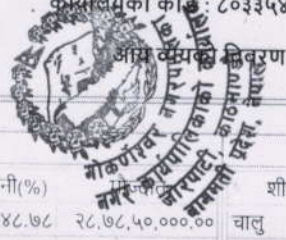 कार्यालयको कोड : ८०३३५४
आय व्ययको विवरण
गोकर्णेश्वर नगरपालिका
नगर कार्यपालिकाको कार्यालय
जोरपाटी, काठमाण्डौ
बागमती प्रदेश, नेपाल
नी(%) शी
४८.७८ २८,७८,५०,०००.०० चालु